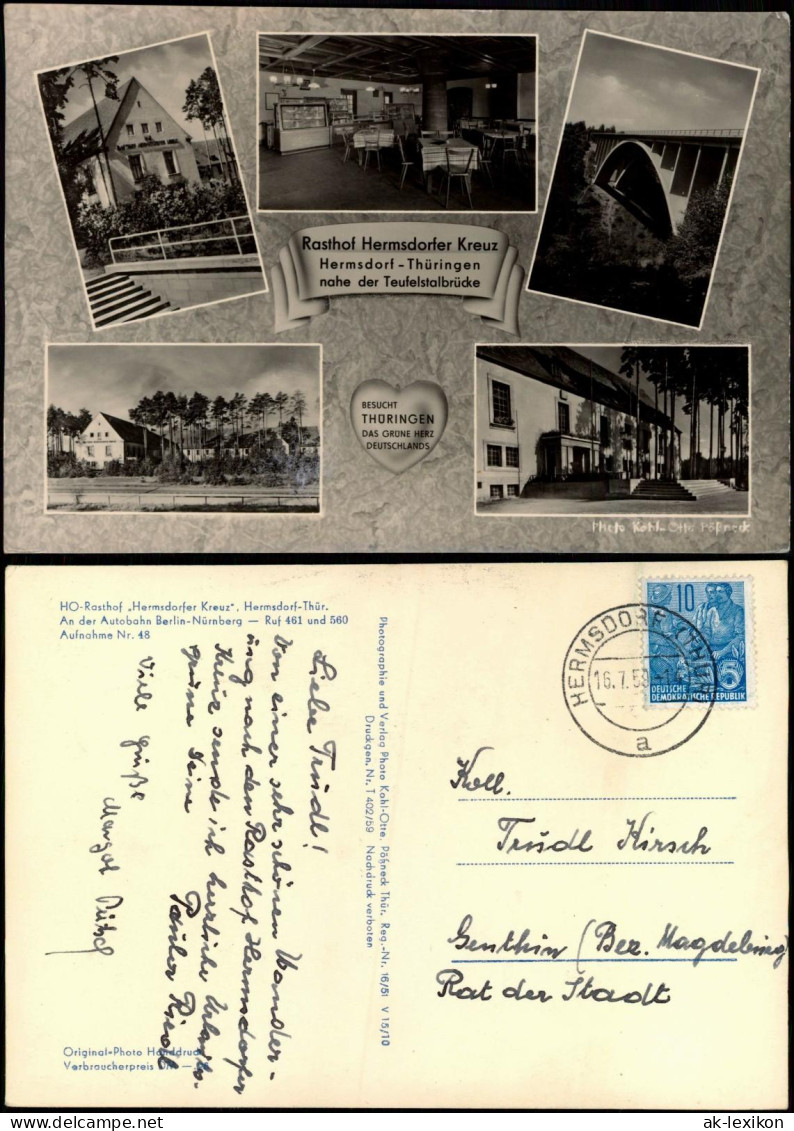 Rasthof Hermsdorfer Kreuz
Hermsdorf - Thüringen
nahe der Teufelstalbrücke
BESUCHT
THÜRINGEN
DAS GRÜNE HERZ
DEUTSCHLANDS
Photo Kahl-Otte Pößneck
HO-Rasthof „Hermsdorfer Kreuz", Hermsdorf-Thür.
An der Autobahn Berlin-Nürnberg — Ruf 461 und 560
Aufnahme Nr. 48
Liebe Trudl!
Von einer sehr schönen Wander-
ung nach den Rasthof Hermsdorfer
Kreuz sende ich herzliche Urlaubs-
grüße Deine
Viele Grüße
Margot
Original-Photo Handdruck
Verbraucherpreis DM —
Photographie und Verlag Photo Kahl-Otte, Pößneck Thür. Reg.-Nr. 16/51 V 15/10
Druckgen. Nr. T 402/59 Nachdruck verboten
HERMSDORF (THÜR)
16.7.59
a
10
5
DEUTSCHE
DEMOKRATISCHE REPUBLIK
Koll.
Trudl Kirsch
Genthin (Bez. Magdeburg)
Rat der Stadt
ak-lexikon.com